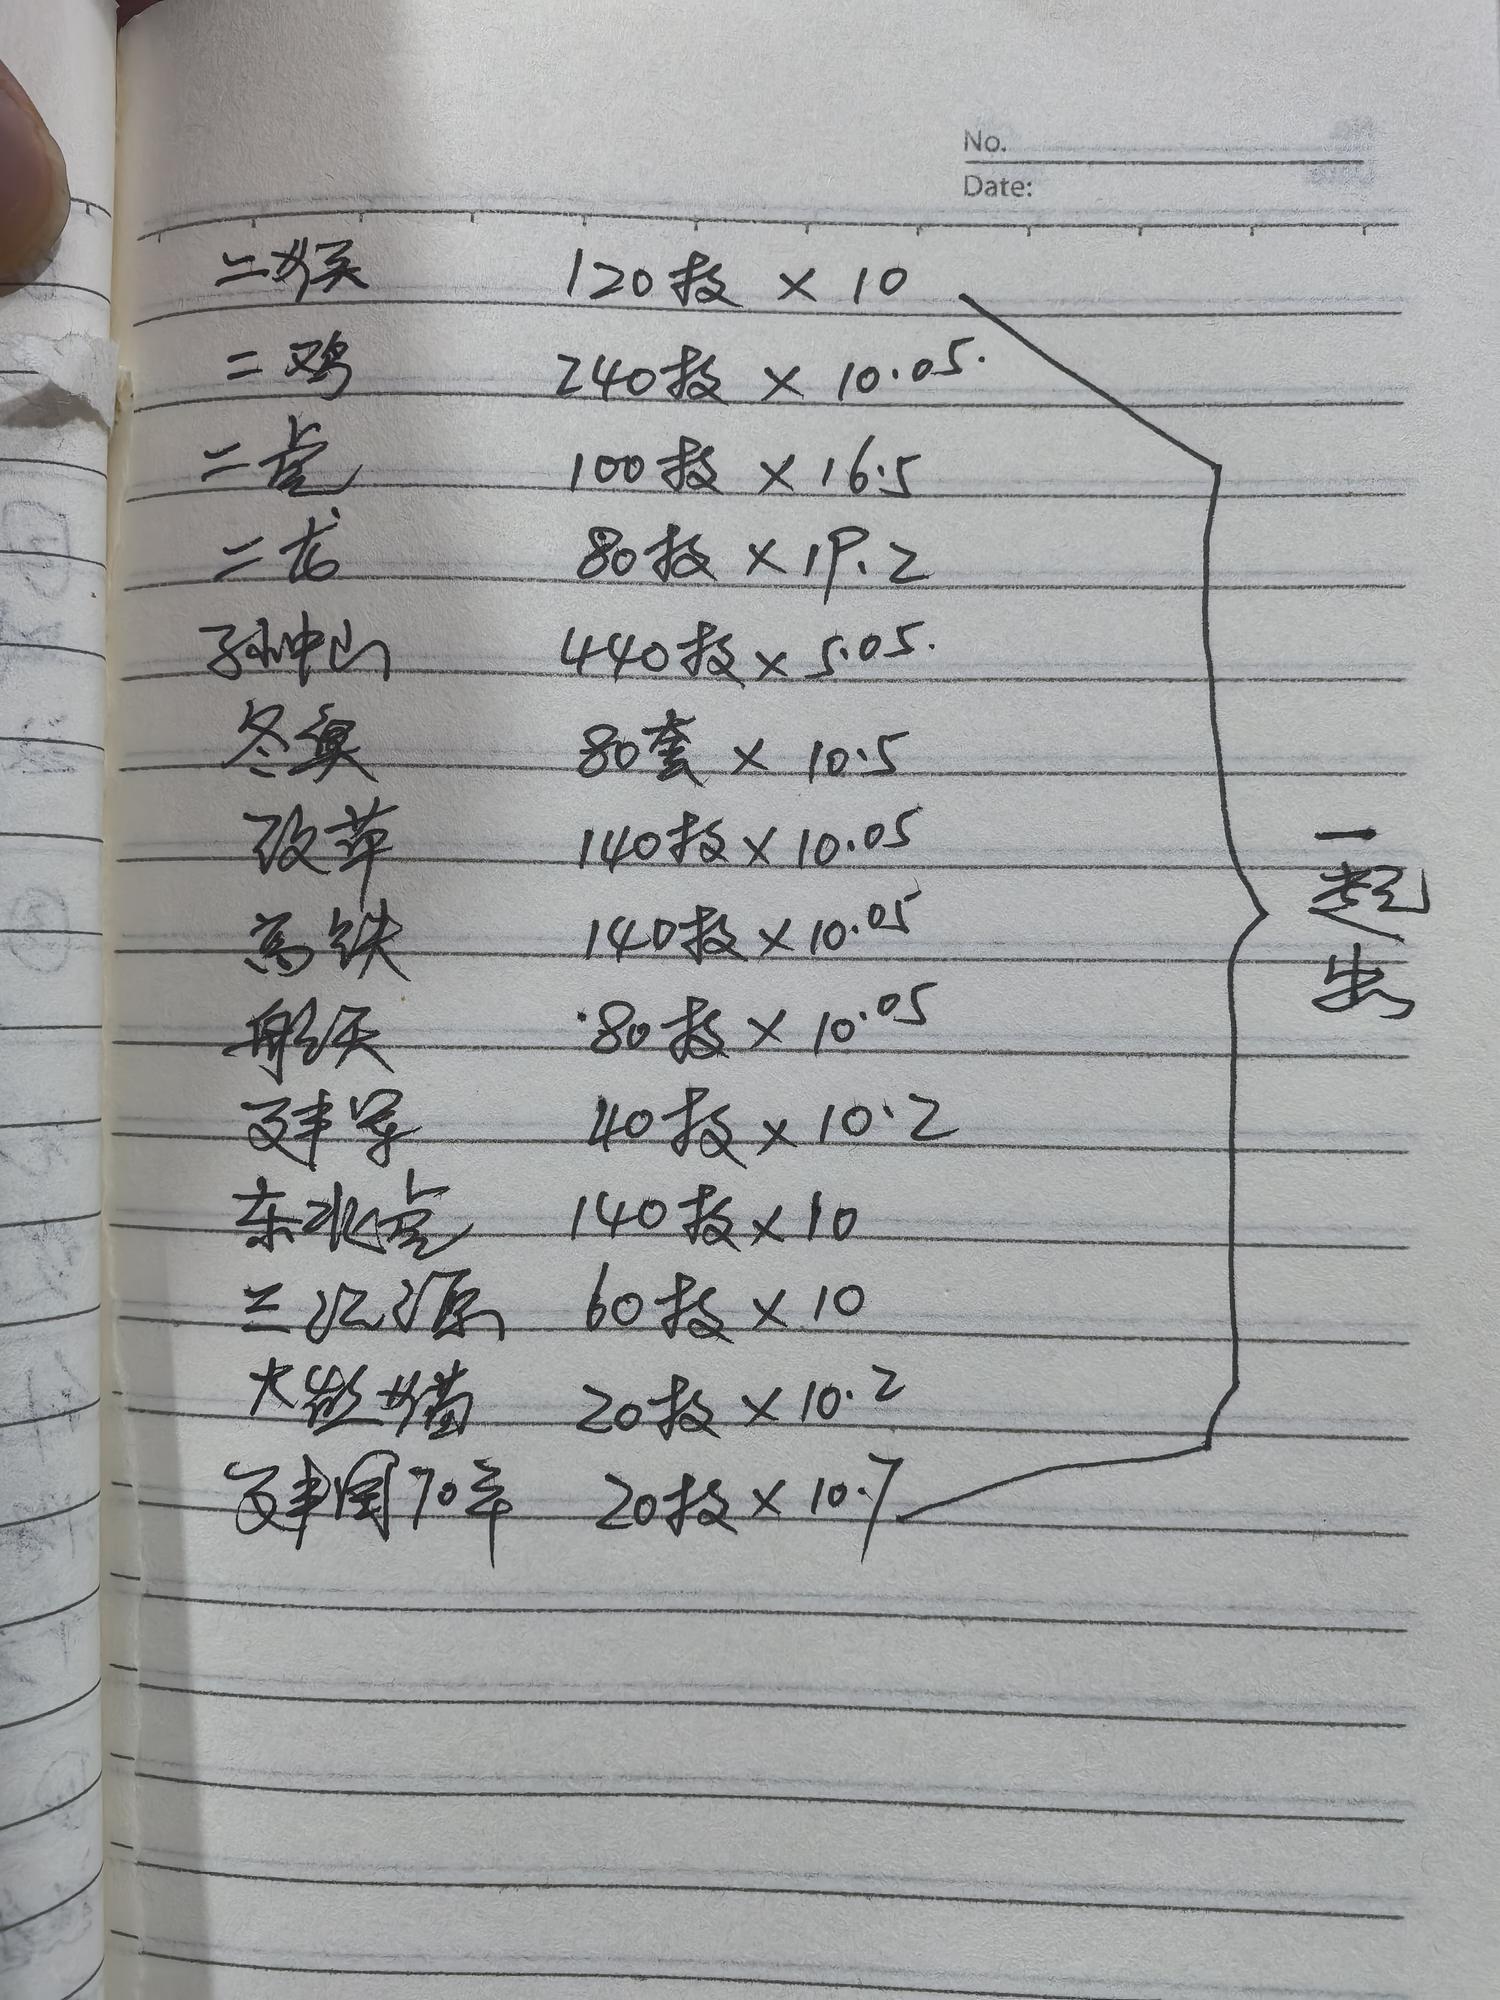 No.
Date:
二猴 120枚 × 10
二鸡 240枚 × 10.05.
二虎 100枚 × 16.5
二龙 80枚 × 19.2
孙中山 440枚 × 5.05.
冬奥 80套 × 10.5
改革 140枚 × 10.05
高铁 140枚 × 10.05
航天 80枚 × 10.05
建军 40枚 × 10.2
东北虎 140枚 × 10
三江源 60枚 × 10
大熊猫 20枚 × 10.2
建国70年 20枚 × 10.7
一起出